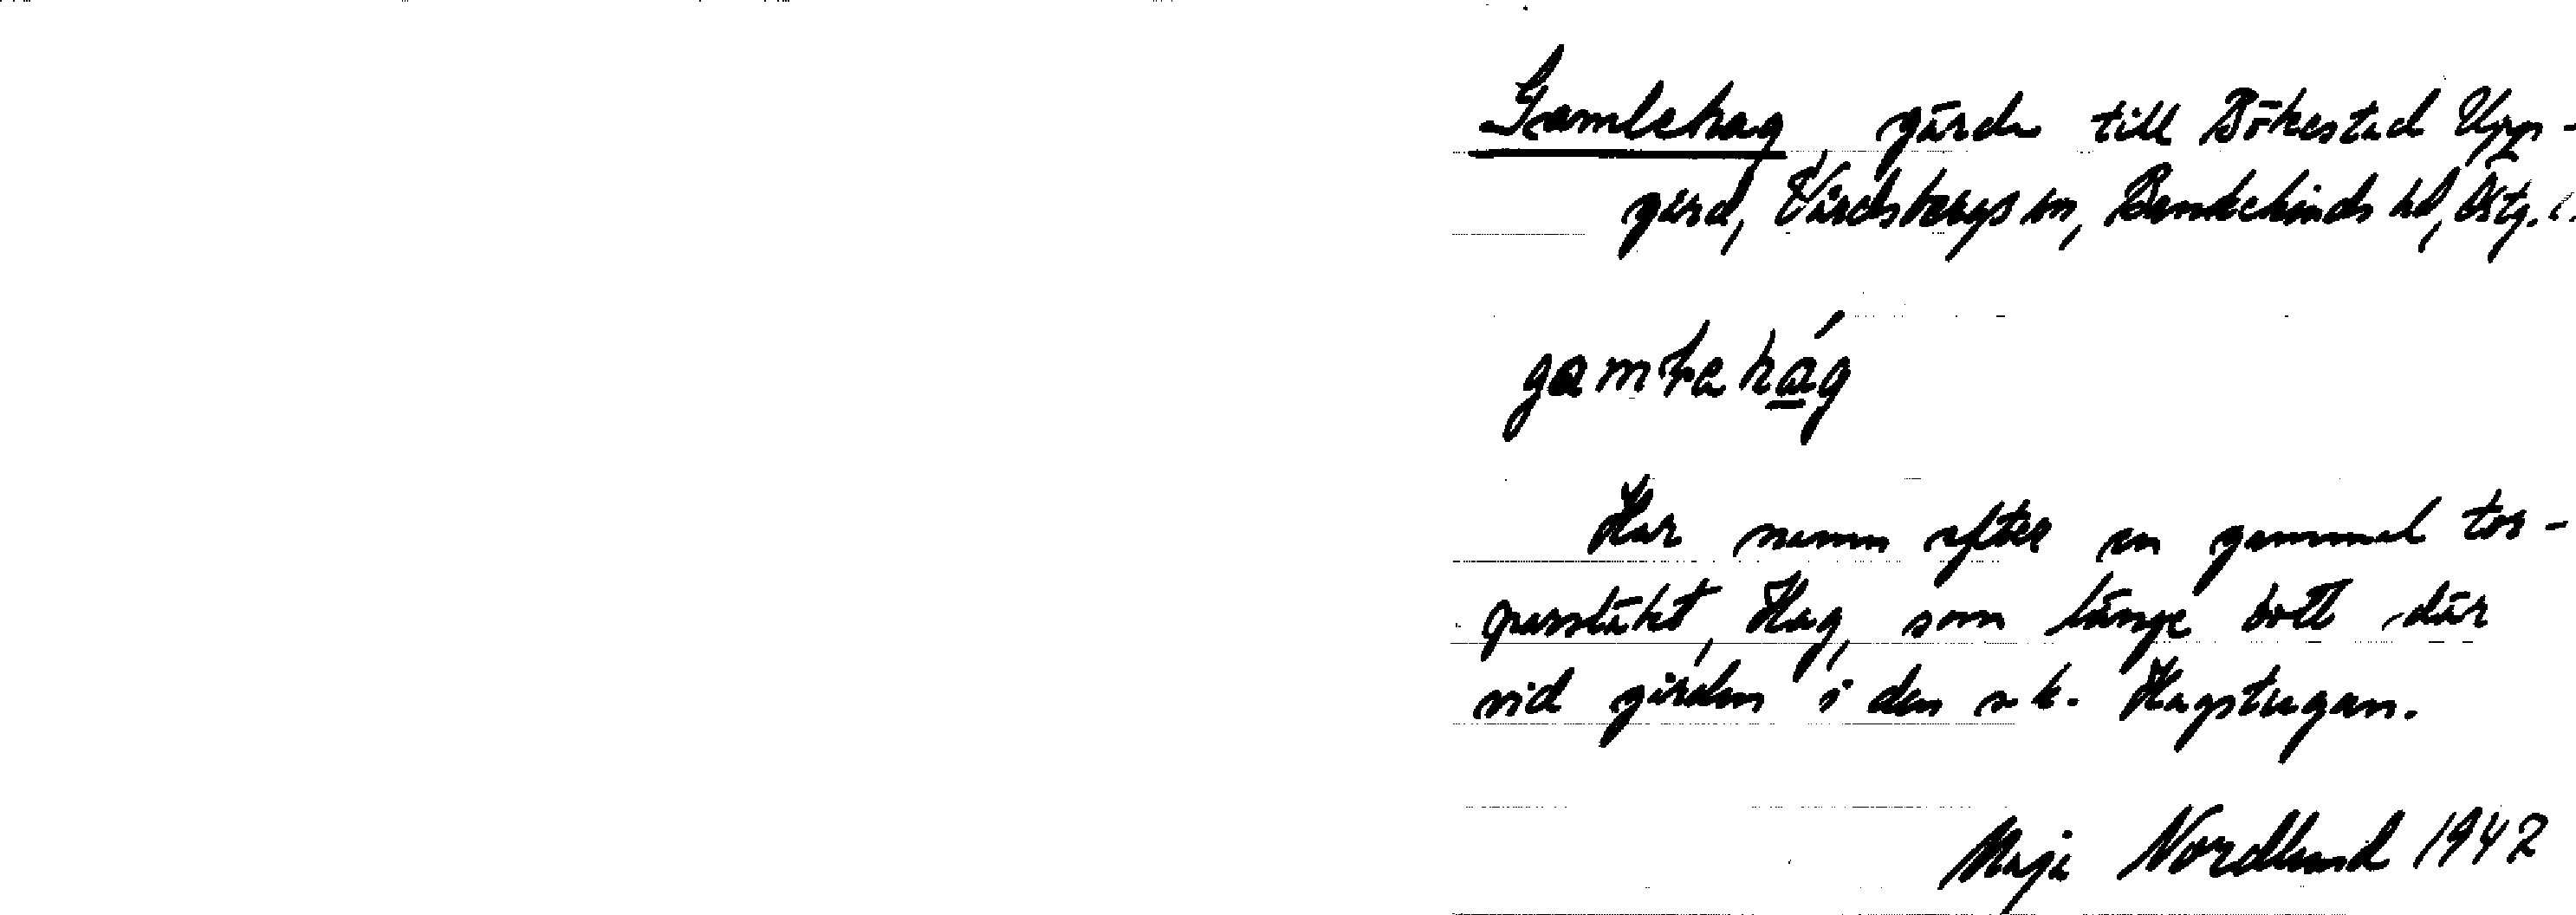 Gamlehag, gärde till Bökestad Upp-
gård, Vårdsbergs sn, Bankekinds hd, Östg.
gamlehág
Har namn efter en gammal tor-
parsläkt, Hag, som länge bott där
vid gärden i den s k. Hagstugan.
Maja Nordlund 1942